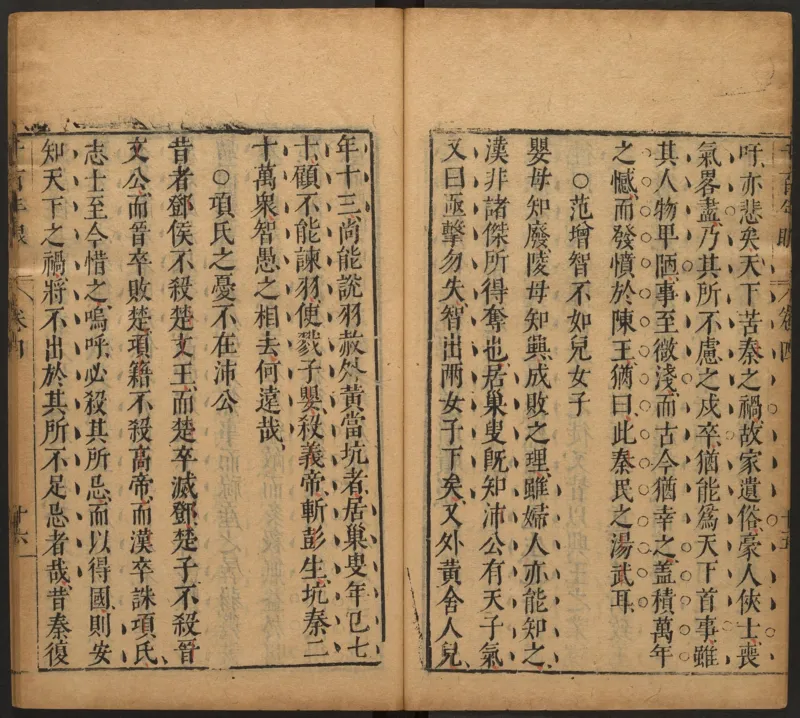 呼亦悲矣天下苦秦之禍故家遺俗豪人俠士喪
氣畧盡乃其所不慮之戍卒猶能為天下首事雖
其人物甲陋事至微淺而古今猶幸之蓋積萬年
之憾而發憤於陳王猶曰此秦民之湯武耳
○范增智不如兒女子
嬰母知廢陵母知興成敗之理雖婦人亦能知之
漢非諸傑所得奪也居巢叟既知沛公有天子氣
又曰亟擊勿失智出兩女子下矣又外黃舍人兒
年十三尚能說羽赦外黃當坑者居巢叟年已七
十顧不能諫羽使戮子嬰殺義帝斬彭生坑秦二
十萬衆智愚之相去何遠哉
○項氏之憂不在沛公
昔者鄧侯不殺楚文王而楚卒滅鄧楚子不殺晉
文公而晉卒敗楚項籍不殺高帝而漢卒誅項氏
志士至今惜之嗚呼必殺其所忌而以得國則安
知天下之禍將不出於其所不足忌者哉昔秦復
卷四
十六